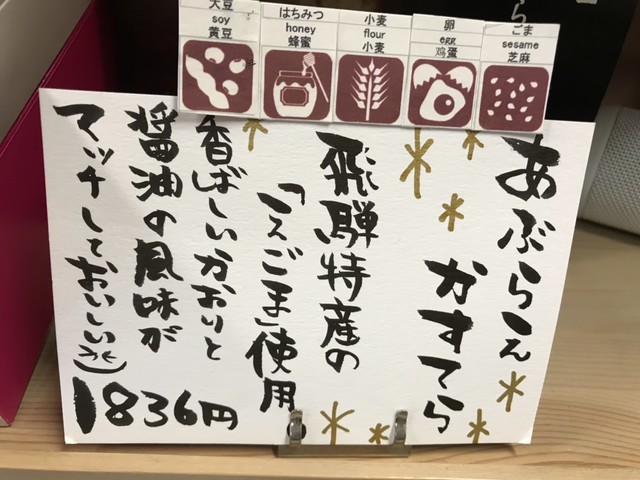 大豆
soy
黄豆
はちみつ
honey
蜂蜜
小麦
flour
小麦
卵
egg
鸡蛋
ごま
sesame
芝麻
あぶらえ
かすてら
飛騨特産の
「えごま」使用
香ばしいかおりと
醤油の風味が
マッチしておいしい
1836円